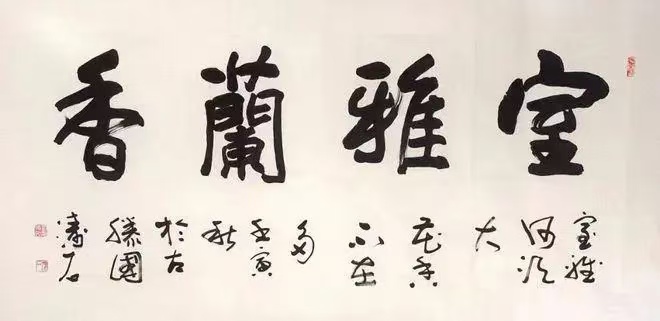 室雅蘭香
室雅
何須
大
花香
不在
多
壬寅
秋
於古
滕國
濤石